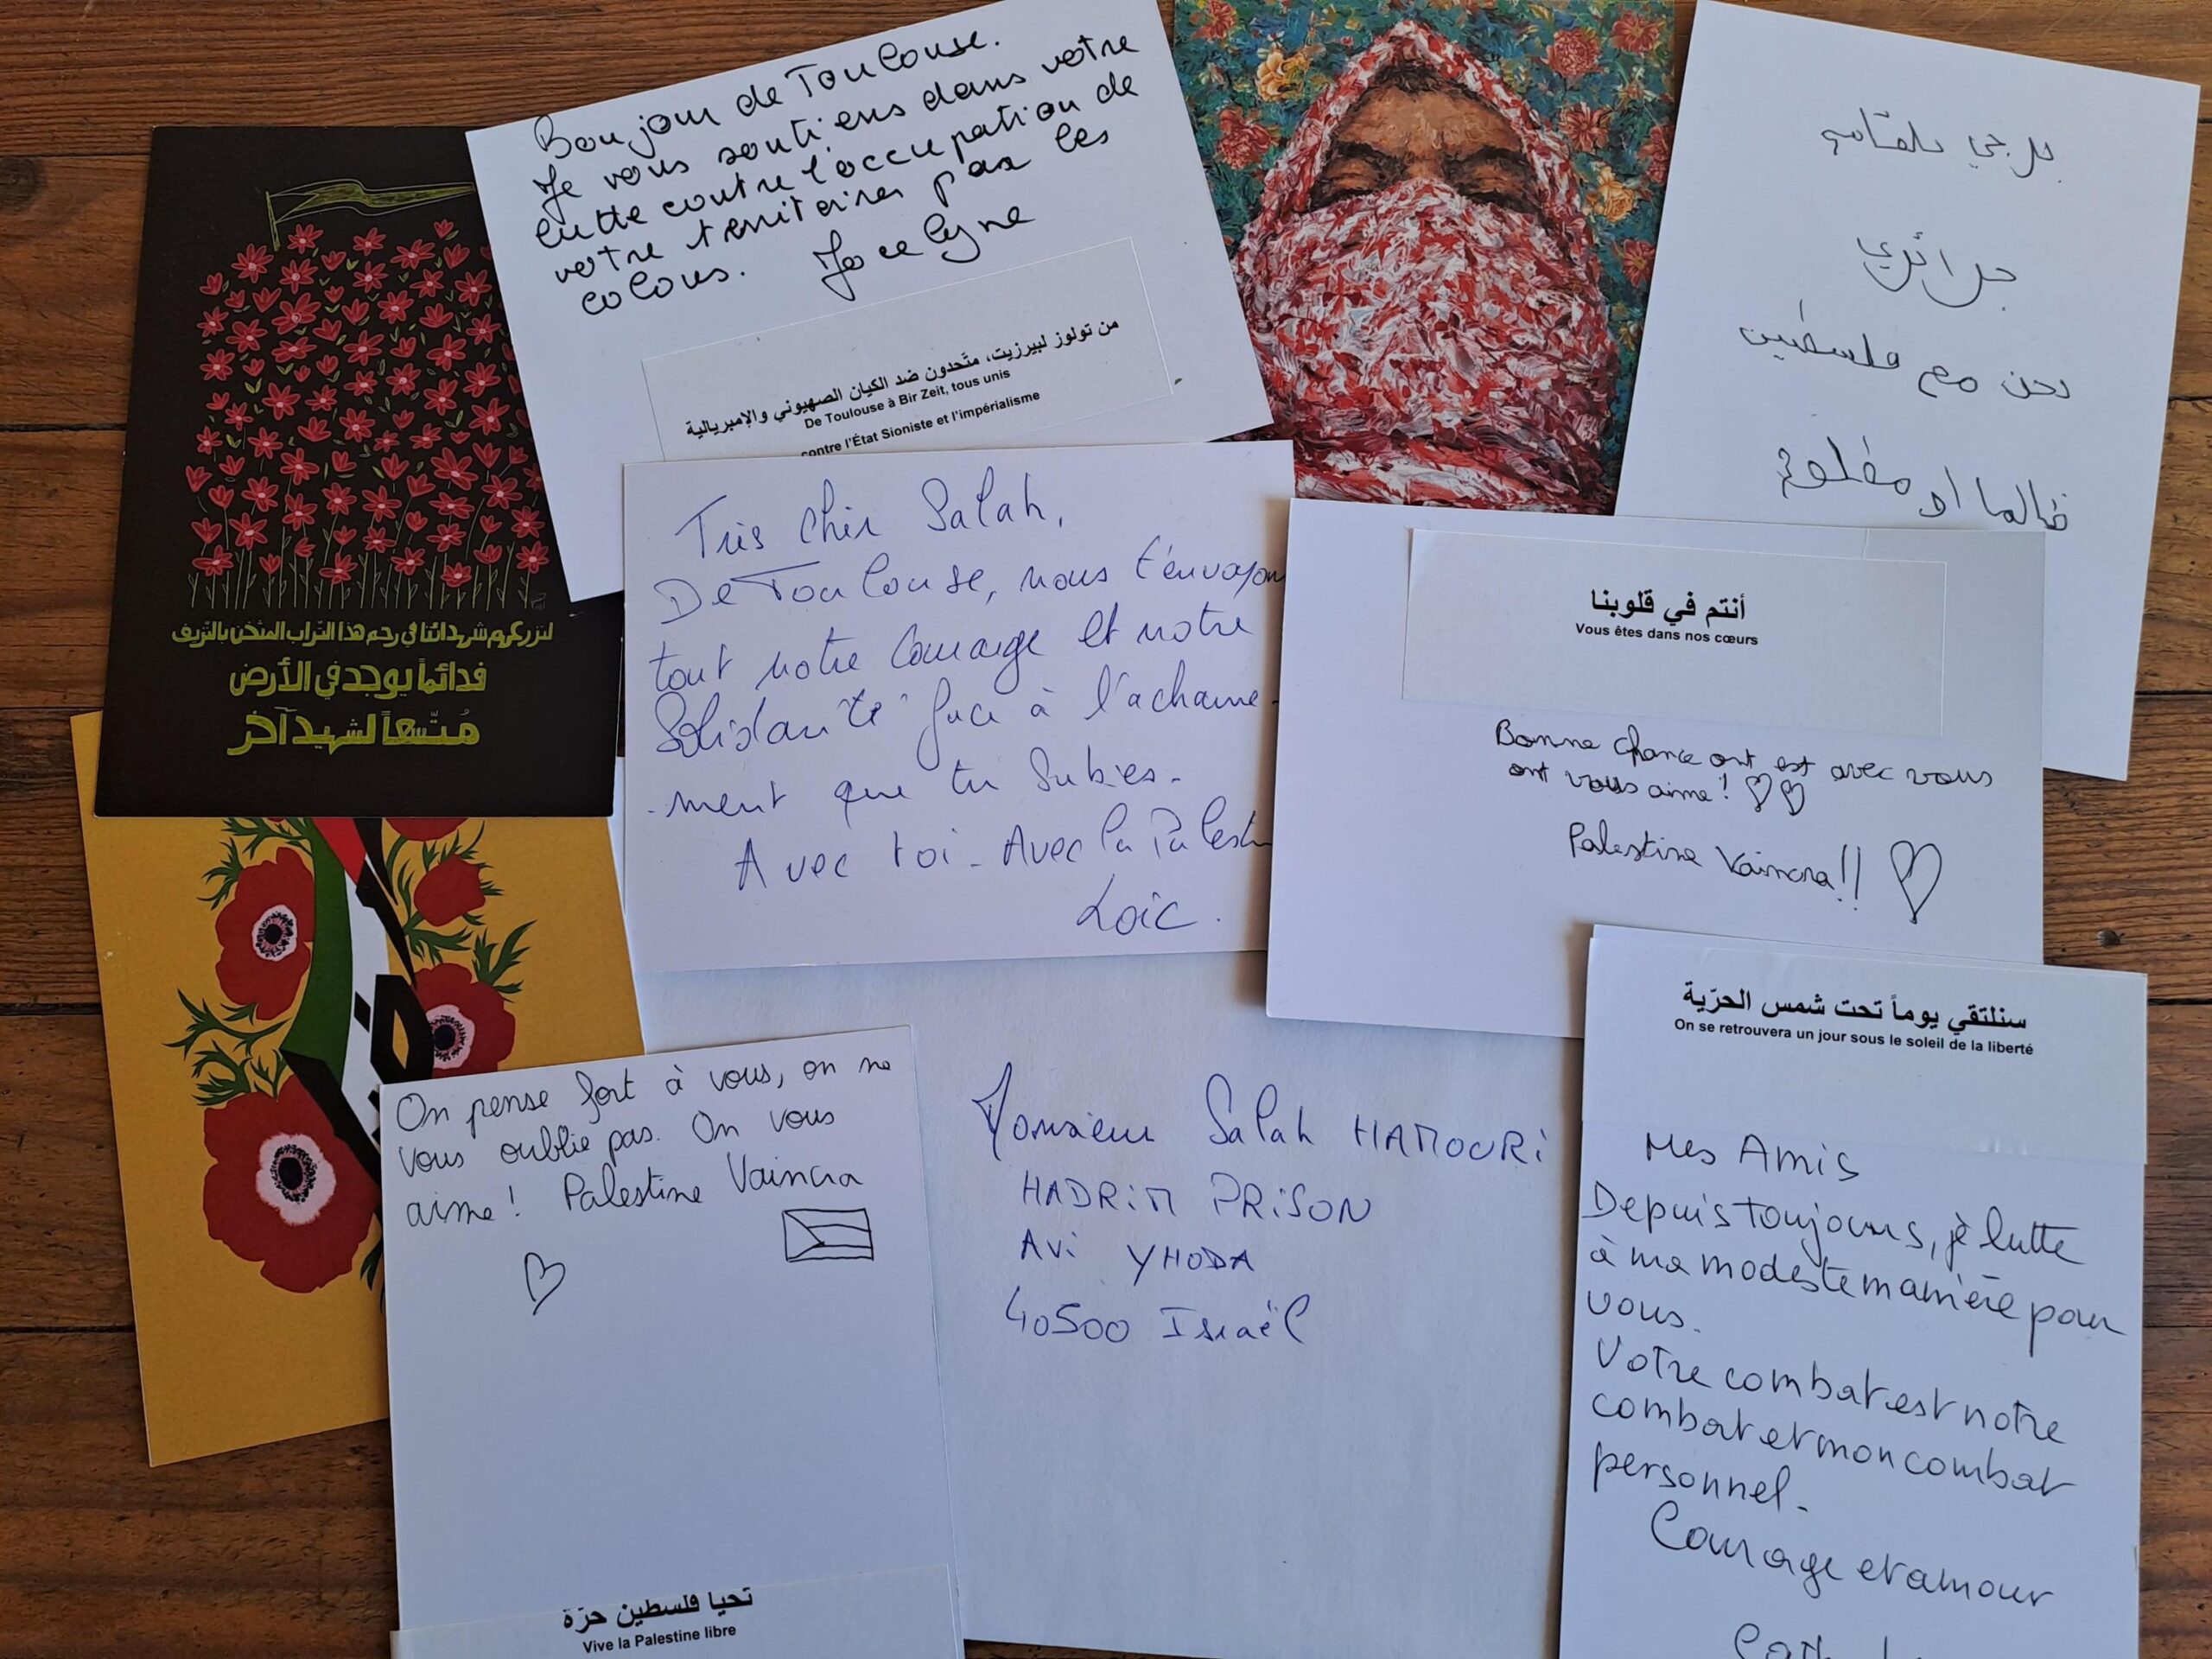 Bonjour de Toulouse.
Je vous soutiens dans votre
lutte contre l'occupation de
votre territoires par les
colons. Jocelyne
من تولوز لبيرزيت، متّحدون ضد الكيان الصهيوني والإمبريالية
De Toulouse à Bir Zeit, tous unis
contre l'État Sioniste et l'impérialisme
جزائري
نحن مع فلسطين
ظالما او مظلومة
لنزرعهم شهدائنا في رحم هذا التراب المثخن بالنزيف
فدائماً يوجد في الأرض
مُتّسعاً لشهيد آخر
Très cher Salah,
De Toulouse, nous t'envoyon
tout notre courage et notre
Solidarité face à l'acharne-
-ment que tu subies-
Avec toi - Avec la Palest
Loïc.
أنتم في قلوبنا
Vous êtes dans nos cœurs
Bonne chance ont est avec vous
ont vous aime! ♡♡
Palestine Vaincra!! ♡
سنلتقي يوماً تحت شمس الحرّية
On se retrouvera un jour sous le soleil de la liberté
Mes Amis
Depuis toujours, je lutte
à ma modeste manière pour
vous.
Votre combat est notre
combat et mon combat
personnel.
Courage et amour
On pense fort à vous, on ne
vous oublie pas. On vous
aime! Palestine Vaincra
♡
تحيا فلسطين حرّة
Vive la Palestine libre
Monsieur Salah HAMOURI
HADRIM PRISON
AVI YHODA
40500 Israël